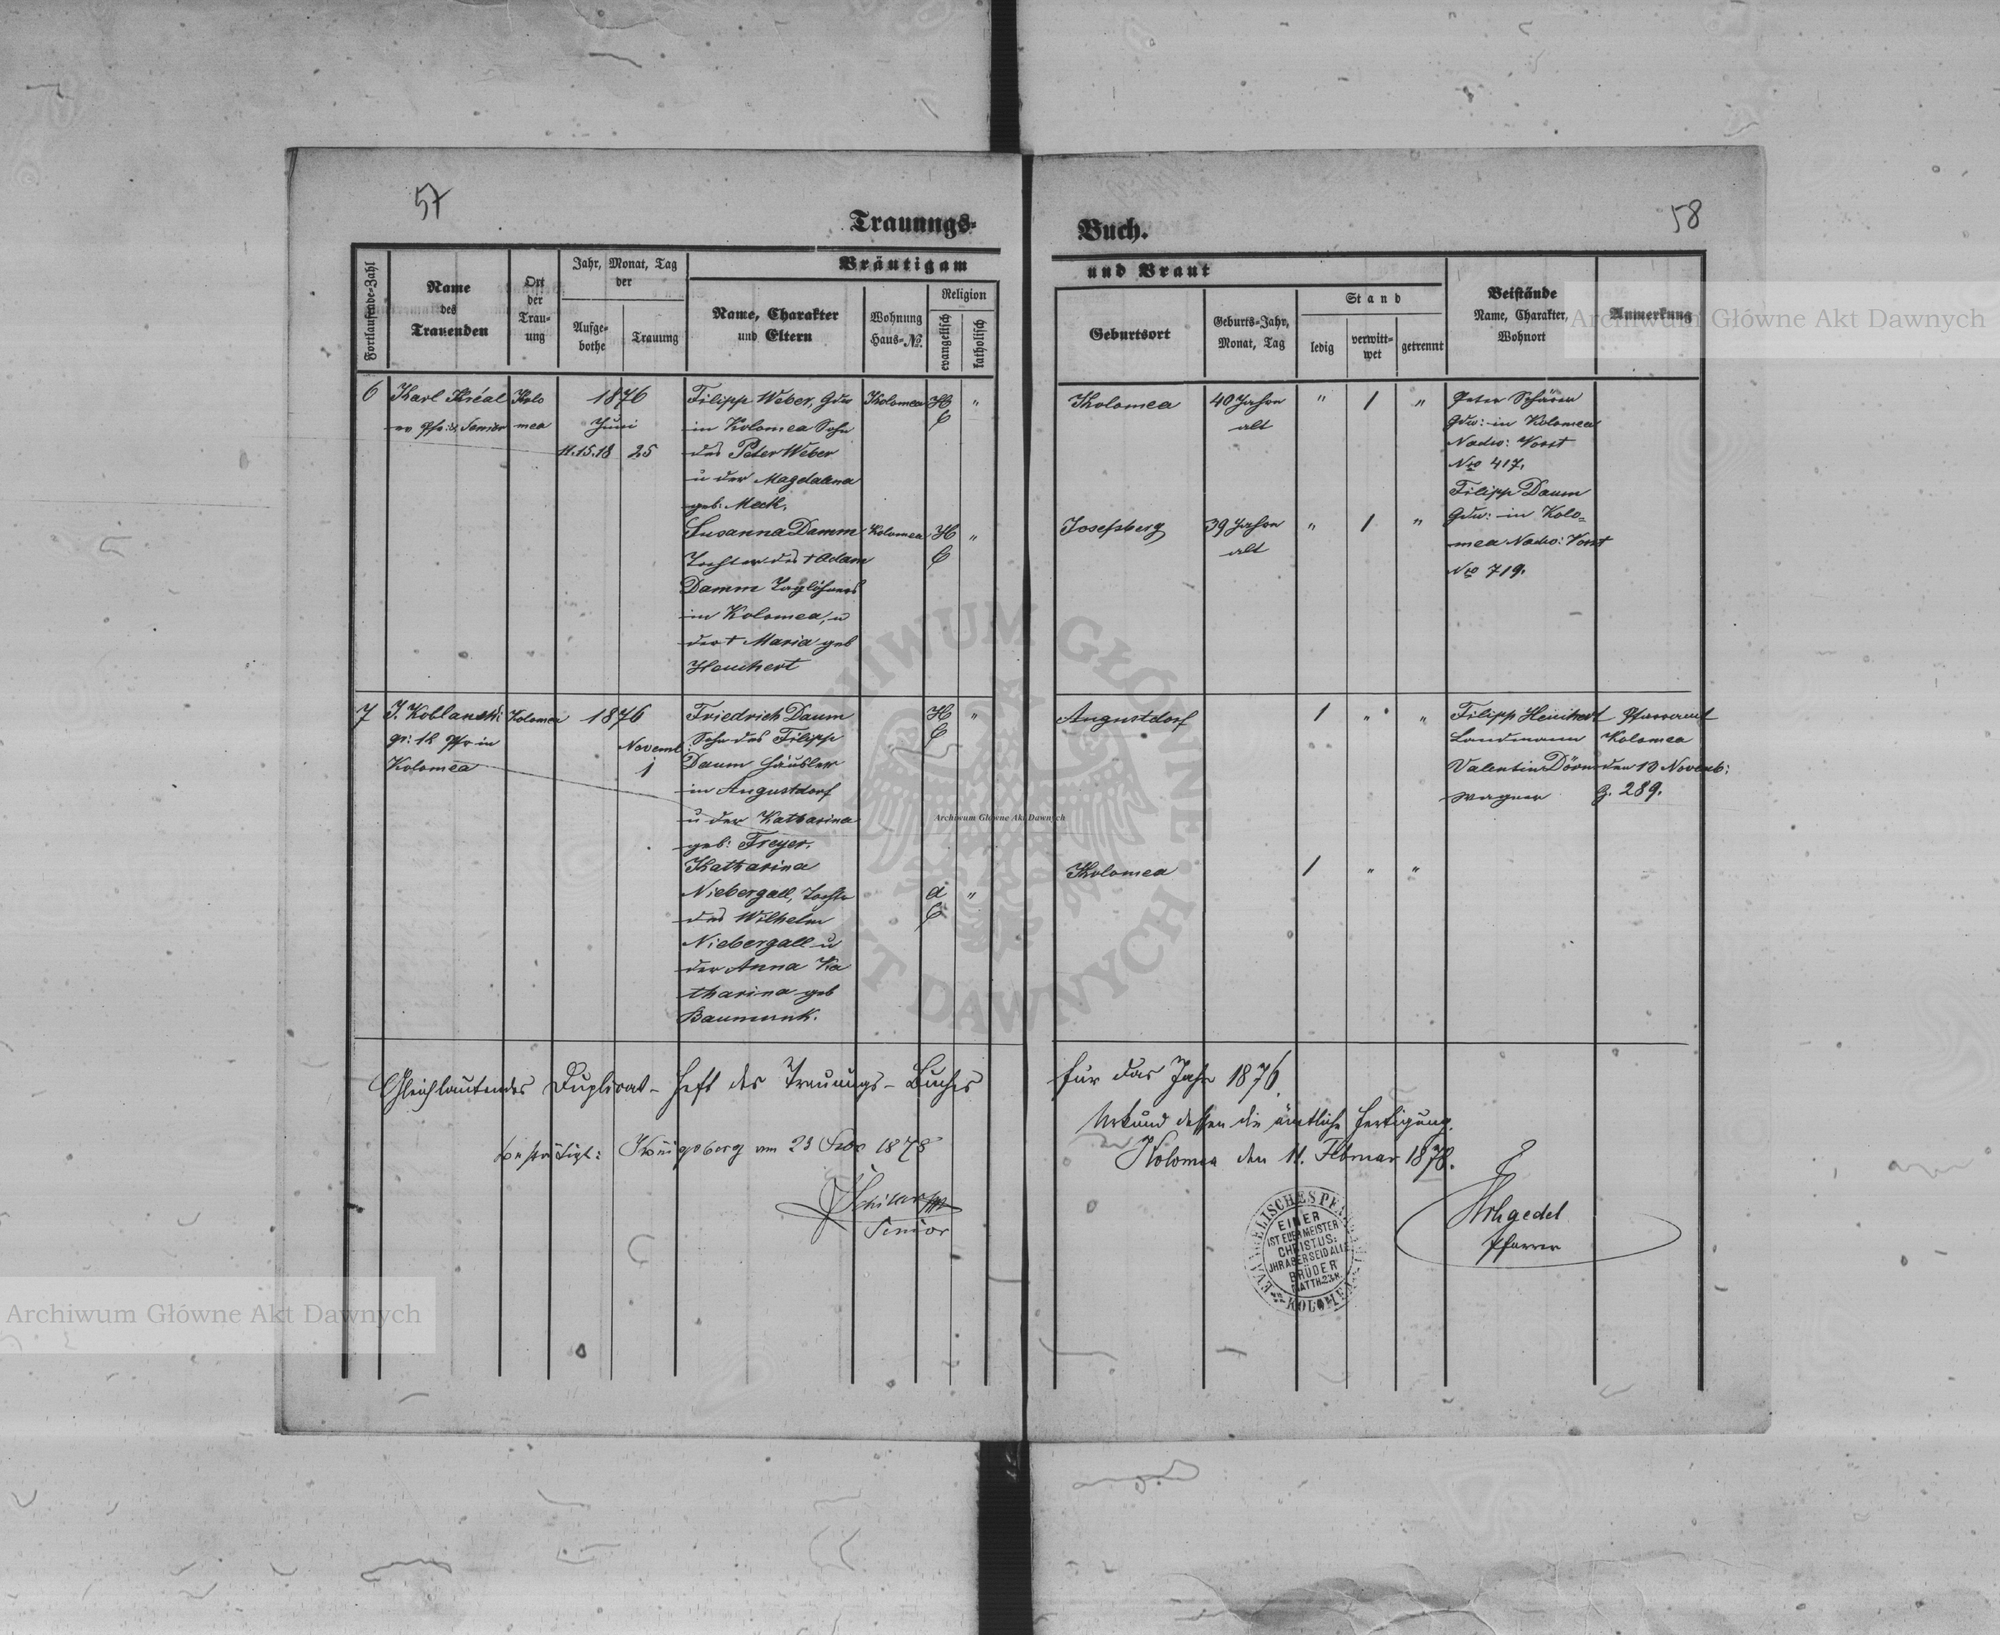 57
58
Trauungs-
Buch.
Fortlaufende-Zahl
Name
des
Trauenden
Ort
der
Trau-
ung
Jahr, Monat, Tag
der
Aufge-
bothe
Trauung
Bräutigam
und Braut
Name, Charakter
und Eltern
Wohnung
Haus-№.
Religion
evangelisch
katholisch
Geburtsort
Geburts-Jahr,
Monat, Tag
Stand
ledig
verwitt-
wet
getrennt
Beistände
Name, Charakter,
Wohnort
Anmerkung
6
Karl
Senior
Kolo
mea
1876
Juni
11.15.18
25
Filipp Weber, Gdw
in Kolomea Sohn
des Peter Weber
u der Magdalena
geb:
Susanna Damm
Tochter des † Adam
Damm Taglöhners
in Kolomea, u
der † Maria geb
Heuchert
Kolomea
H
C
"
Kolomea
H
C
"
Kolomea
40 Jahre
alt
"
1
"
Josefsberg
39 Jahre
alt
"
1
"
Peter Schärer
Gdw: in Kolomea
Nadw: Vorst
Nro 417.
Filipp Daum
Gdw: in Kolo=
mea Nadw: Vorst
Nro 719.
7
J. Koblanski
in
Kolomea
Kolomea
1876
Novemb:
1
Friedrich Daum
Sohn des Filipp
Daum Häusler
in Augustdorf
u der Katharina
geb: Freyer.
Katharina
Niebergall, Tochter
des Wilhelm
Niebergall u
der Anna Ka
tharina geb
Baumunk.
H
C
"
A
C
"
Augustdorf
1
"
"
Kolomea
1
"
"
Filipp Heuchert
Landmann
Valentin Dörr
Wagner
Pfarramt
Kolomea
den 13 Novemb:
Z. 289.
Gleichlautendes Duplicat-Heft des Trauungs-Buches
für das Jahr 1876.
Urkund dessen die ämtliche Fertigung.
Kolomea den 11. Februar 1878.
bestätigt: Königsberg am 23 1878
Senior
Pfarrer
EVANGELISCHES
KOLOMEA
EINER
IST EUER MEISTER
CHRISTUS:
JHR ABER SEID ALLE
BRÜDER
MATTH. 23.8.
Archiwum Główne Akt Dawnych
Archiwum Główne Akt Dawnych
Archiwum Główne Akt Dawnych
ARCHIWUM GŁÓWNE
AKT DAWNYCH